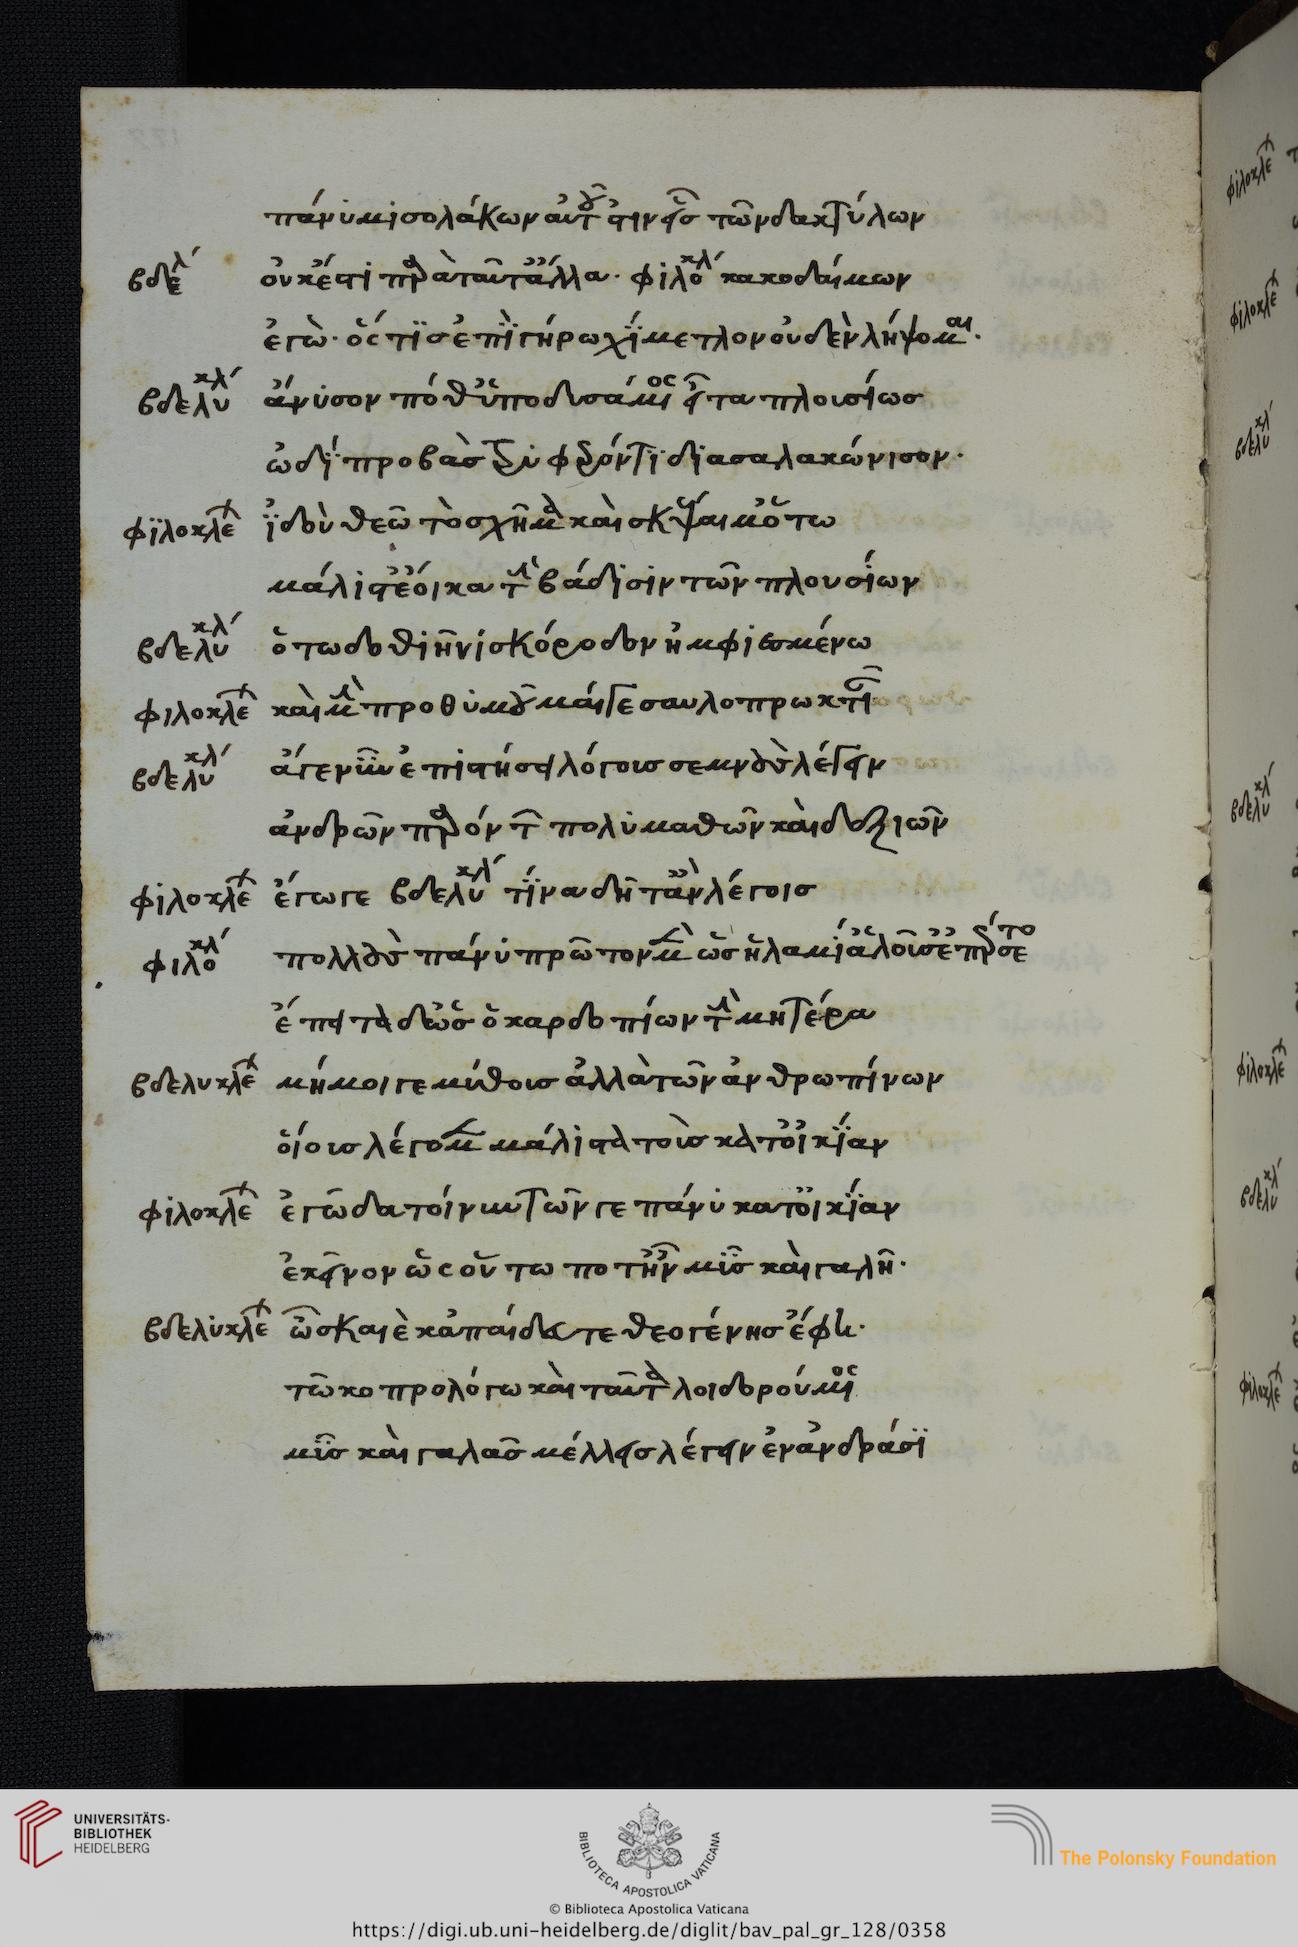 πάνυ μισολάκων αὐτοῦ στιν εἷς τῶν δακτύλων
βδελ οὐκ ἔστι παρὰ ταῦτ' ἄλλα· φιλοκλ κακοδαίμων
ἐγώ· ὅστις ἐπὶ γήρω χίμετλον οὐδὲν λήψομαι·
βδελυκλ ἄνυσον πόθ' ὑποδυσάμενος εἶτα πλουσίως
ὡδὶ προβὰς τρυφερόν τι διασαλακώνισον·
φιλοκλε ἰδοὺ θεῶ τὸ σχῆμα καὶ σκέψαι μ' ὅτω
μάλιστ' ἔοικα τὴν βάδισιν τῶν πλουσίων
βδελυκλ ὅτω δοθιῆνι σκόροδον ἠμφιεσμένω
φιλοκλε καὶ μὴν προθυμοῦμαί γε σαυλοπρωκτιᾶν
βδελυκλ ἄγε νῦν ἐπιστήσει λόγους σεμνοὺς λέγειν
ἀνδρῶν παρόντων πολυμαθῶν καὶ δεξιῶν
φιλοκλε ἔγωγε βδελυκλ τίνα δῆτ' ἂν λέγοις
φιλοκλ πολλοὺς πάνυ πρῶτον μὲν ὡς ἡ λάμι' ἁλοῦσ' ἐπέρδετο
ἔπειτα δ' ὡς ὁ καρδοπίων τὴν μητέρα
βδελυκλε μή μοι γε μύθους ἀλλὰ τῶν ἀνθρωπίνων
οἵους λέγομεν μάλιστα τοὺς κατ' οἰκίαν
φιλοκλε ἐγῶδα τοίνυν τῶν γε πάνυ κατ' οἰκίαν
ἐκεῖνον ὡς οὕτω ποτ' ἦν μῦς καὶ γαλῆ·
βδελυκλε ὦ σκαιὲ κἀπαίδευτε θεογένης ἔφη·
τῶ κοπρολόγω καὶ ταῦτα λοιδορούμενος
μῦς καὶ γαλᾶς μέλλεις λέγειν ἐν ἀνδράσι
UNIVERSITÄTS-
BIBLIOTHEK
HEIDELBERG
BIBLIOTECA APOSTOLICA VATICANA
The Polonsky Foundation
© Biblioteca Apostolica Vaticana
https://digi.ub.uni-heidelberg.de/diglit/bav_pal_gr_128/0358